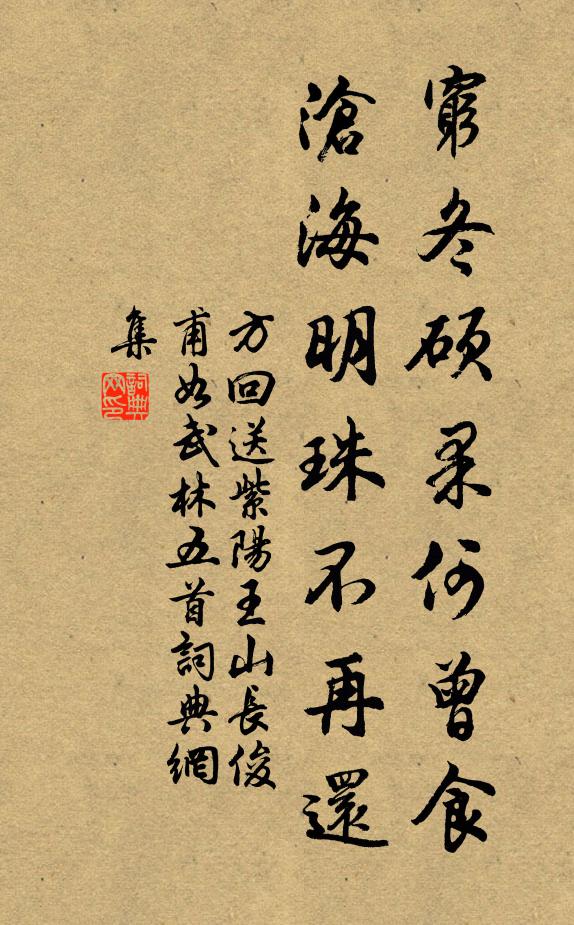 窮冬碩果何曾食
滄海明珠不再還
方回送紫陽王山長俊
甫如武林五首詞典網
集
詞典網印